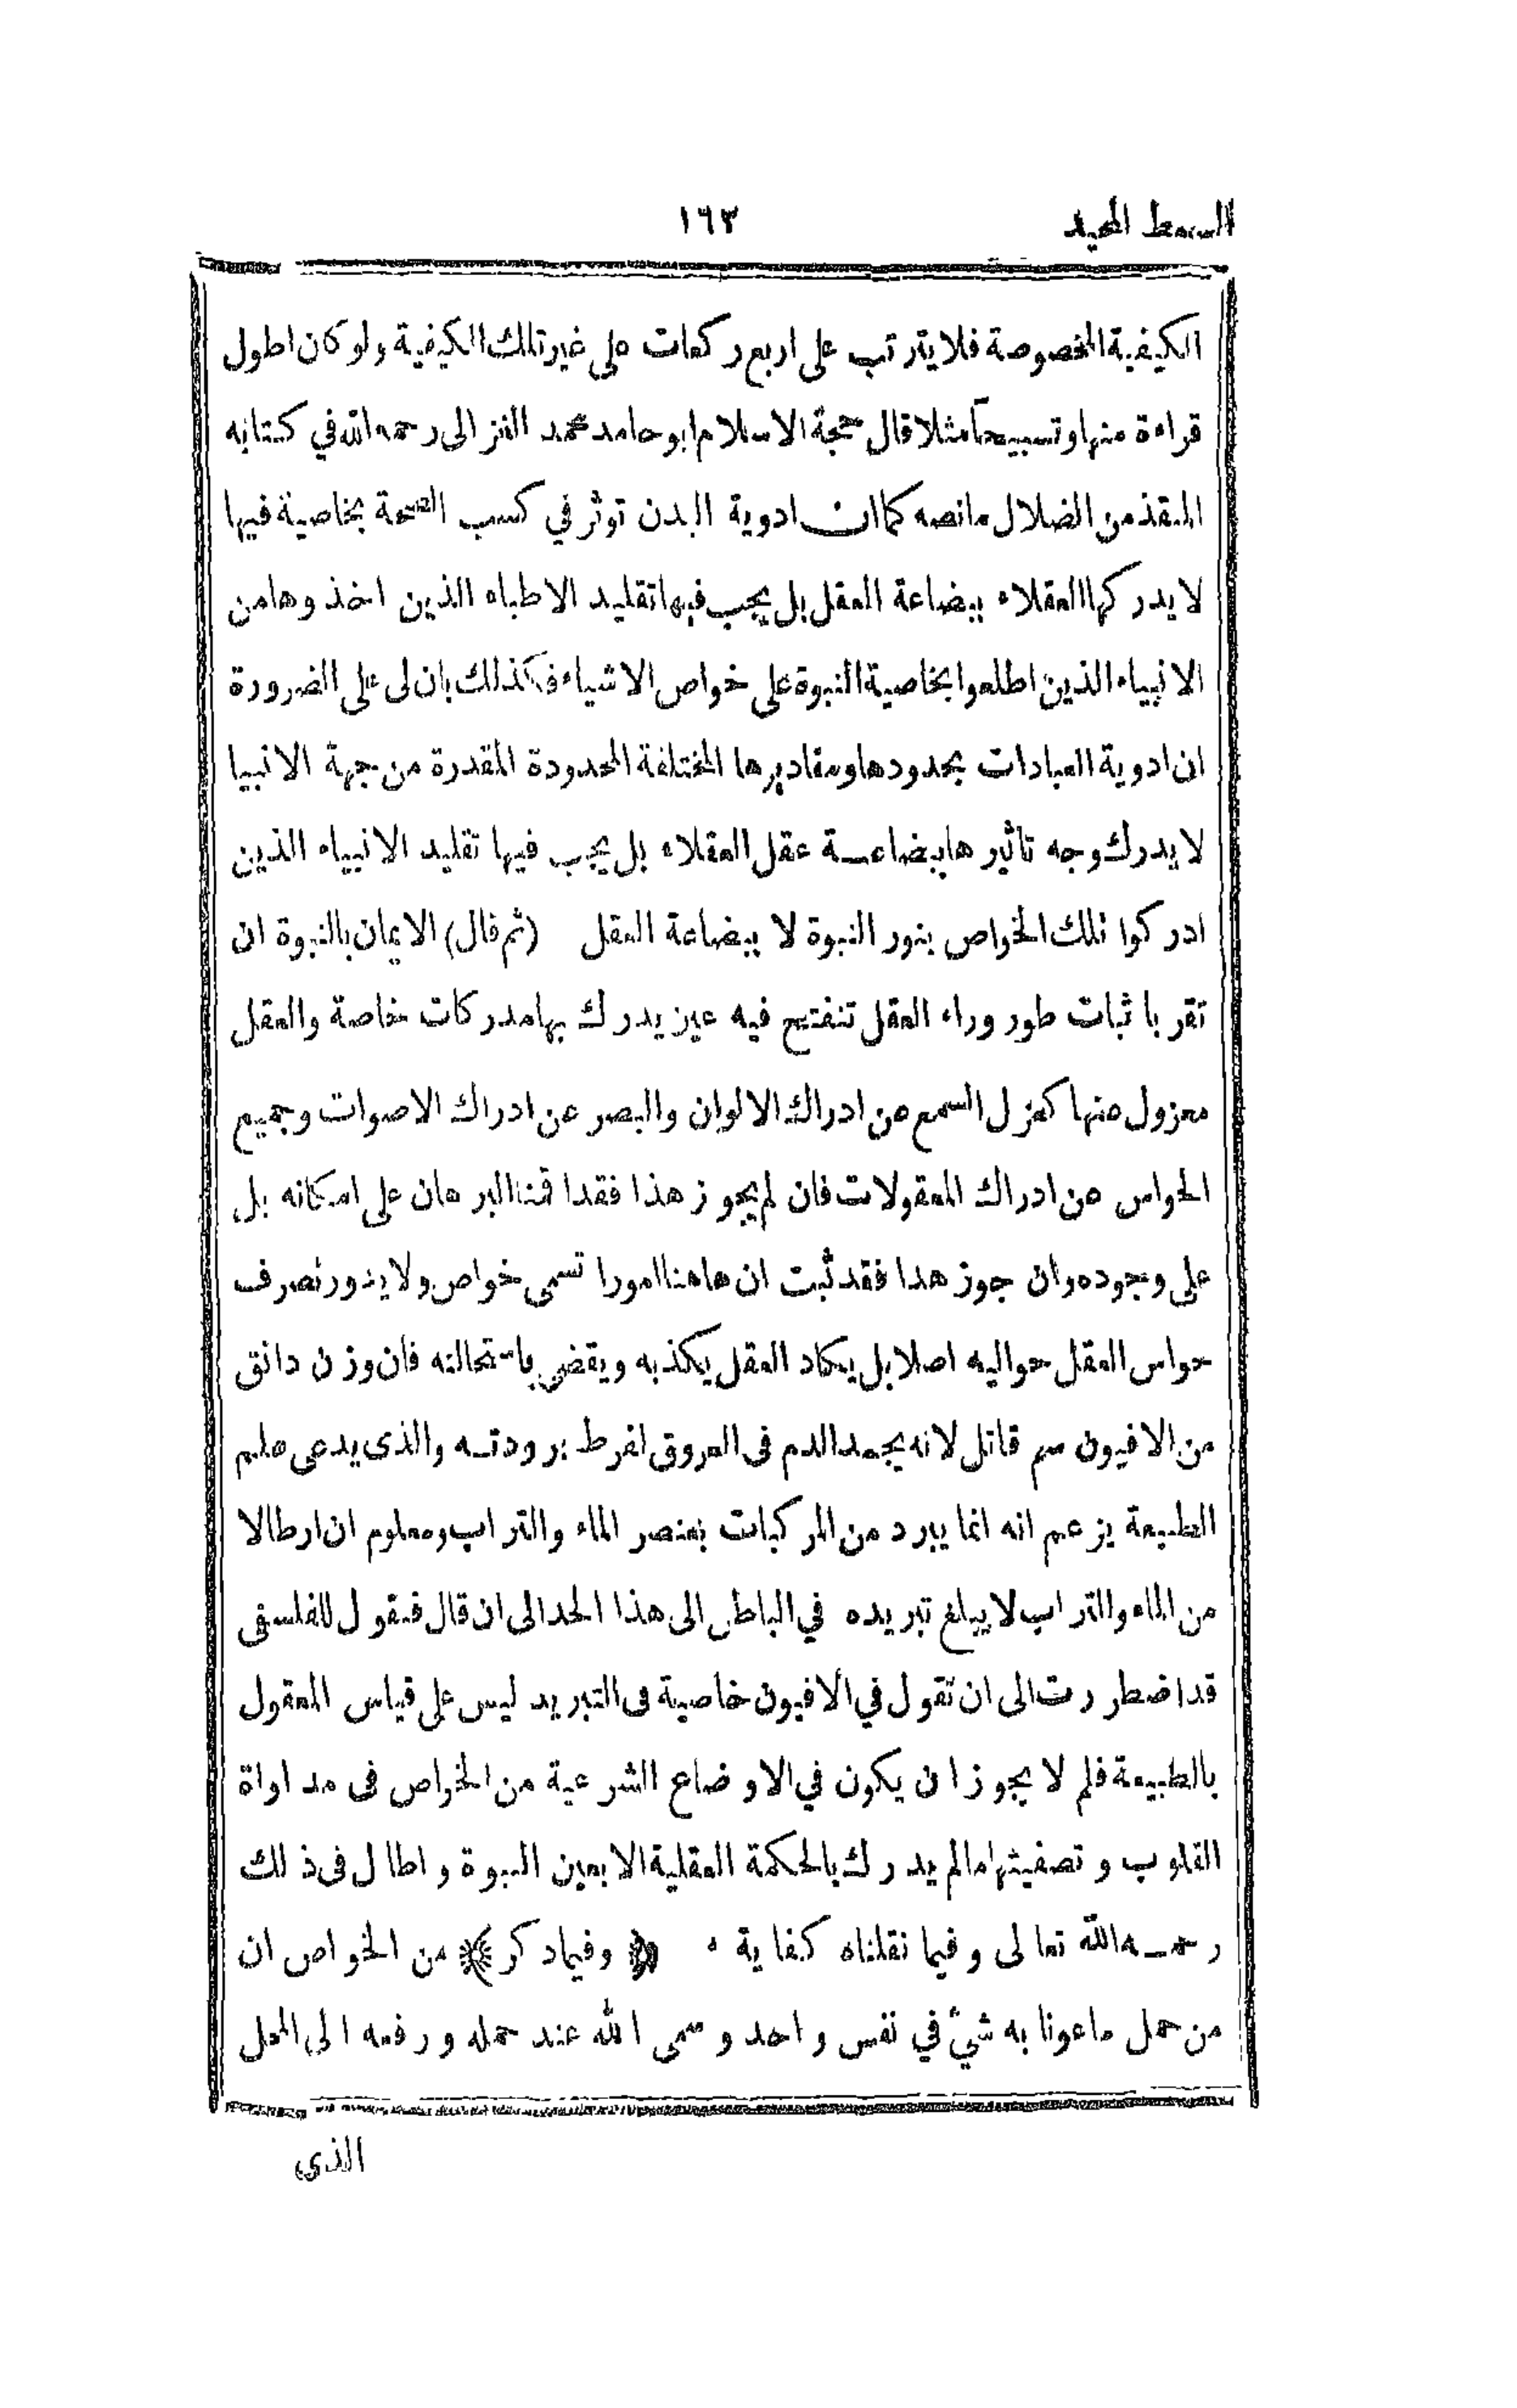 السمط المجيد
١٦٣
الكيفية المخصوصة فلا يترتب على اربع ركعات على غير تلك الكيفية ولو كان اطول
قراءة منها وتسبيحاً مثلا قال حجة الاسلام ابو حامد محمد الغزالى رحمه الله في كتابه
المنقذ من الضلال ما نصه كما ان ادوية البدن توثر في كسب الصحة بخاصية فيها
لا يدركها العقلاء ببضاعة العقل بل يجب فيها تقليد الاطباء الذين اخذوها من
الانبياء الذين اطلعوا بخاصية النبوة على خواص الاشياء فكذلك بان لى على الضرورة
ان ادوية العبادات بحدودها ومقاديرها المختلفة المحدودة المقدرة من جهة الانبيا
لا يدرك وجه تاثيرها ببضاعة عقل العقلاء بل يجب فيها تقليد الانبياء الذين
ادركوا تلك الخواص بنور النبوة لا ببضاعة العقل (ثم قال) الايمان بالنبوة ان
تقر با ثبات طور وراء العقل تنفتح فيه عين يدرك بها مدركات خاصة والعقل
معزول عنها كعزل السمع عن ادراك الالوان والبصر عن ادراك الاصوات وجميع
الحواس عن ادراك المعقولات فان لم يجوز هذا فقد اقمنا البرهان على امكانه بل
على وجوده وان جوز هدا فقد ثبت ان هاهنا امورا تسمى خواص ولا يدور تصرف
حواس العقل حواليه اصلا بل يكاد العقل يكذبه ويقضى باستحالته فان وزن دانق
من الافيون سم قاتل لانه يجمد الدم فى العروق لفرط برودته والذى يدعى علم
الطبيعة يزعم انه انما يبرد من المركبات بعنصر الماء والتراب ومعلوم ان ارطالا
من الماء والتراب لا يبلغ تبريده في الباطن الى هذا الحد الى ان قال فنقول للفلسفى
قد اضطررت الى ان تقول في الافيون خاصية فى التبريد ليس على قياس المعقول
بالطبيعة فلم لا يجوز ان يكون في الاوضاع الشرعية من الخواص فى مداواة
القلوب وتصفيتها ما لم يدرك بالحكمة العقلية الا بعين النبوة واطال فى ذلك
رحمه الله تعالى وفيما نقلناه كفاية ۰ ﴿وفيما دكر﴾ من الخواص ان
من حمل ماعونا به شيً في نفس واحد وسمى الله عند حمله ورفعه الى المحل
الذى